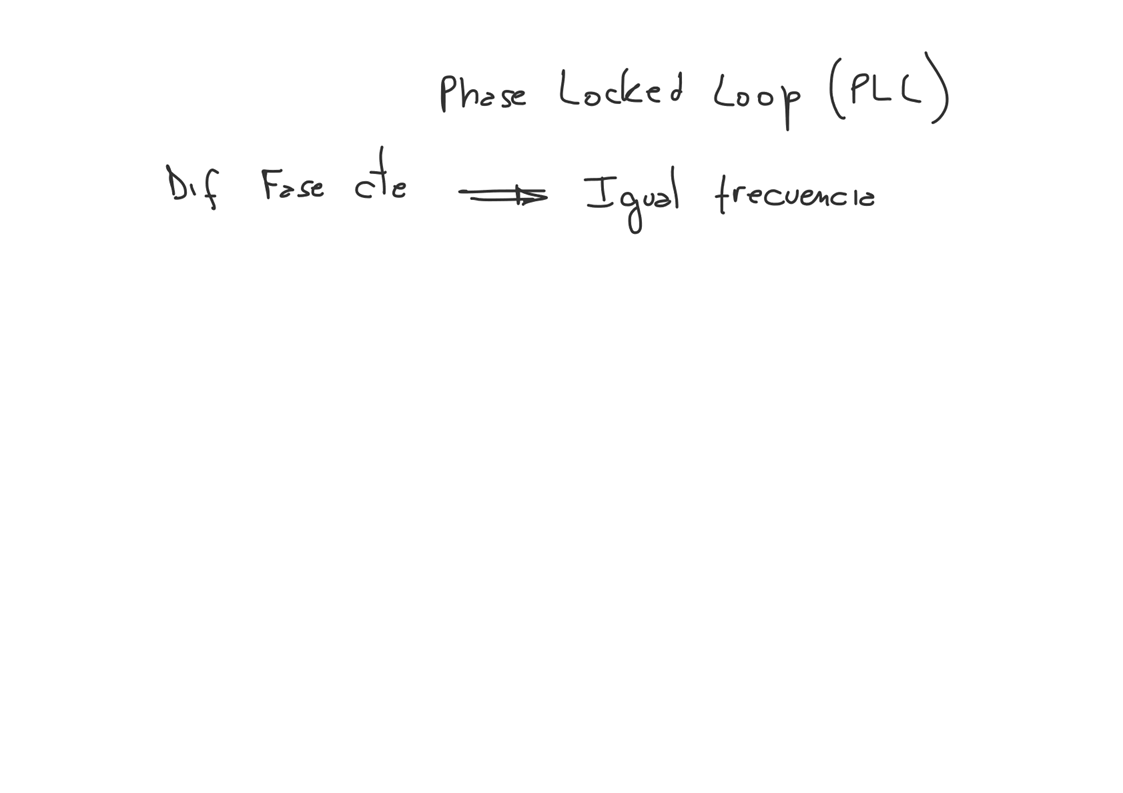 Phase Locked Loop (PLL)
Dif Fase cte ⇒ Igual frecuencia